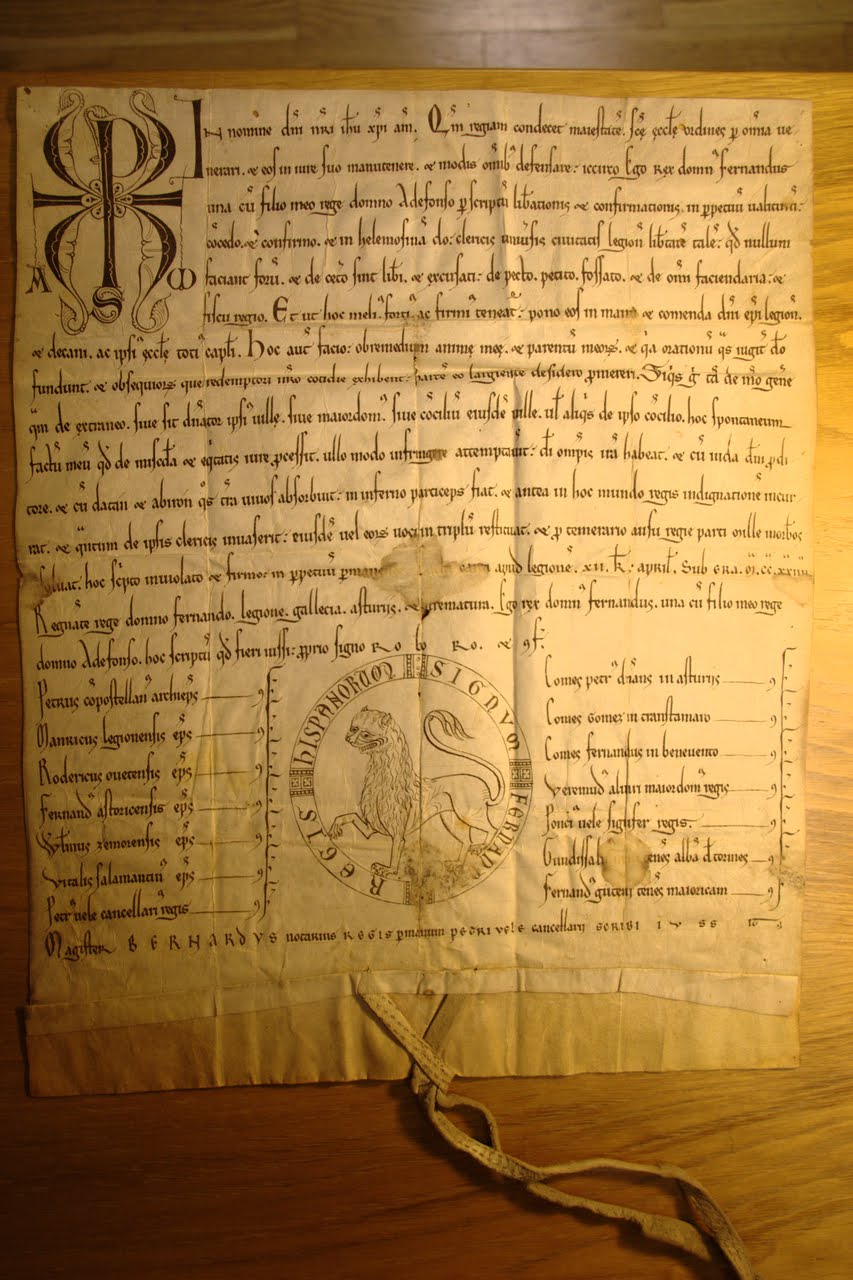 A ω S
IN nomine dñi nr̃i ih̃u xp̃i am̃. Qm̃ regiam condecet maiestatē. sc̄ę ęcclę p om̄ia ue
nerari. & eos in iure suo manutenere. & modis om̄ib defensare: iccirco Ego Rex domn fernandus
una cū filio meo rege domno Adefonso p scriptū lib̄tationis & confirmationis. in ppetuū ualiturū.
cōcedo. & cōfirmo. & in helemosinā do: clericis ciuitatis legion lib̄tatē talē: qd nullum
faciant forū. & de cet̄o sint lib̄i. & excusati: de pecto. petito. fossato. & de om̄i faciendaria: &
fiscu regio. Et ut hoc meli. forti. ac firmi teneat: pono eos in manu & comenda dñi ep̄i legion.
& decani. ac ipsi ęcclę toti capłi. Hoc aut facio: ob remedium animę meę. & parentū meorū. & qa orationū qs iugit dō
fundunt. & obsequiorū que redemptori nr̄o cotidie exhibent: partē eo largiente desidero pmereri. Siqs g̃ tā de meo gene
qm de extraneo. siue sit dn̄ator ipsi uille. siue maiordom. siue cōciliū eiusdē uille. ut aliqs de ipso cōcilio. hoc spontaneum
factū meū qd de mis̄cda & eqtatis iure pcessit. ullo modo infringere attemptauit: di om̄ips irā habeat. & cū iuda dn̄i pdi
tore. & cū datan & abiron qs t̄ra uiuos absorbuit: in inferno particeps fiat. & antea in hoc mundo regis indignationē incur
rat. & qntum de ipsis clericis inuaserit: eiusdē uel eorū uoci in triplū restituat. & p temerario ausu regie parti mille morb̄os
soluat. hoc scpto inuiolato & firmo: in ppetuū apud legionē. xii. k. april. Sub ERA
Regnāte rege domno fernando. legione. gallecia. asturiis. & Extrematura. Ego rex domn fernandus. una cū filio meo rege
domno Adefonso. hoc scriptū qd fieri iussi: pprio signo Ro bo Ro. & 9f.
Petrus cōpostellan archieps 9f
Manricus legionensis eps 9f
Rodericus ouetensis eps 9f
Fernand astoricensis eps 9f
Wlmus zemorensis eps 9f
Vitalis salamantin eps 9f
Petr uele cancellari regis 9f
SIGNVM FERNANDI REGIS HISPANORVM
Comes petr in asturiis 9f
Comes Gomez in transtamaro 9f
Comes fernandus in beneuento 9f
Veremud aluari maiordom regis 9f
Ponci uele signifer regis. 9f
Gundissal tenes alba d tormes 9f
Fernand guterri tenes maioricam 9f
Magister BERNARDVS notarius REGIS p manum petri uele cancellarii scribi iussit